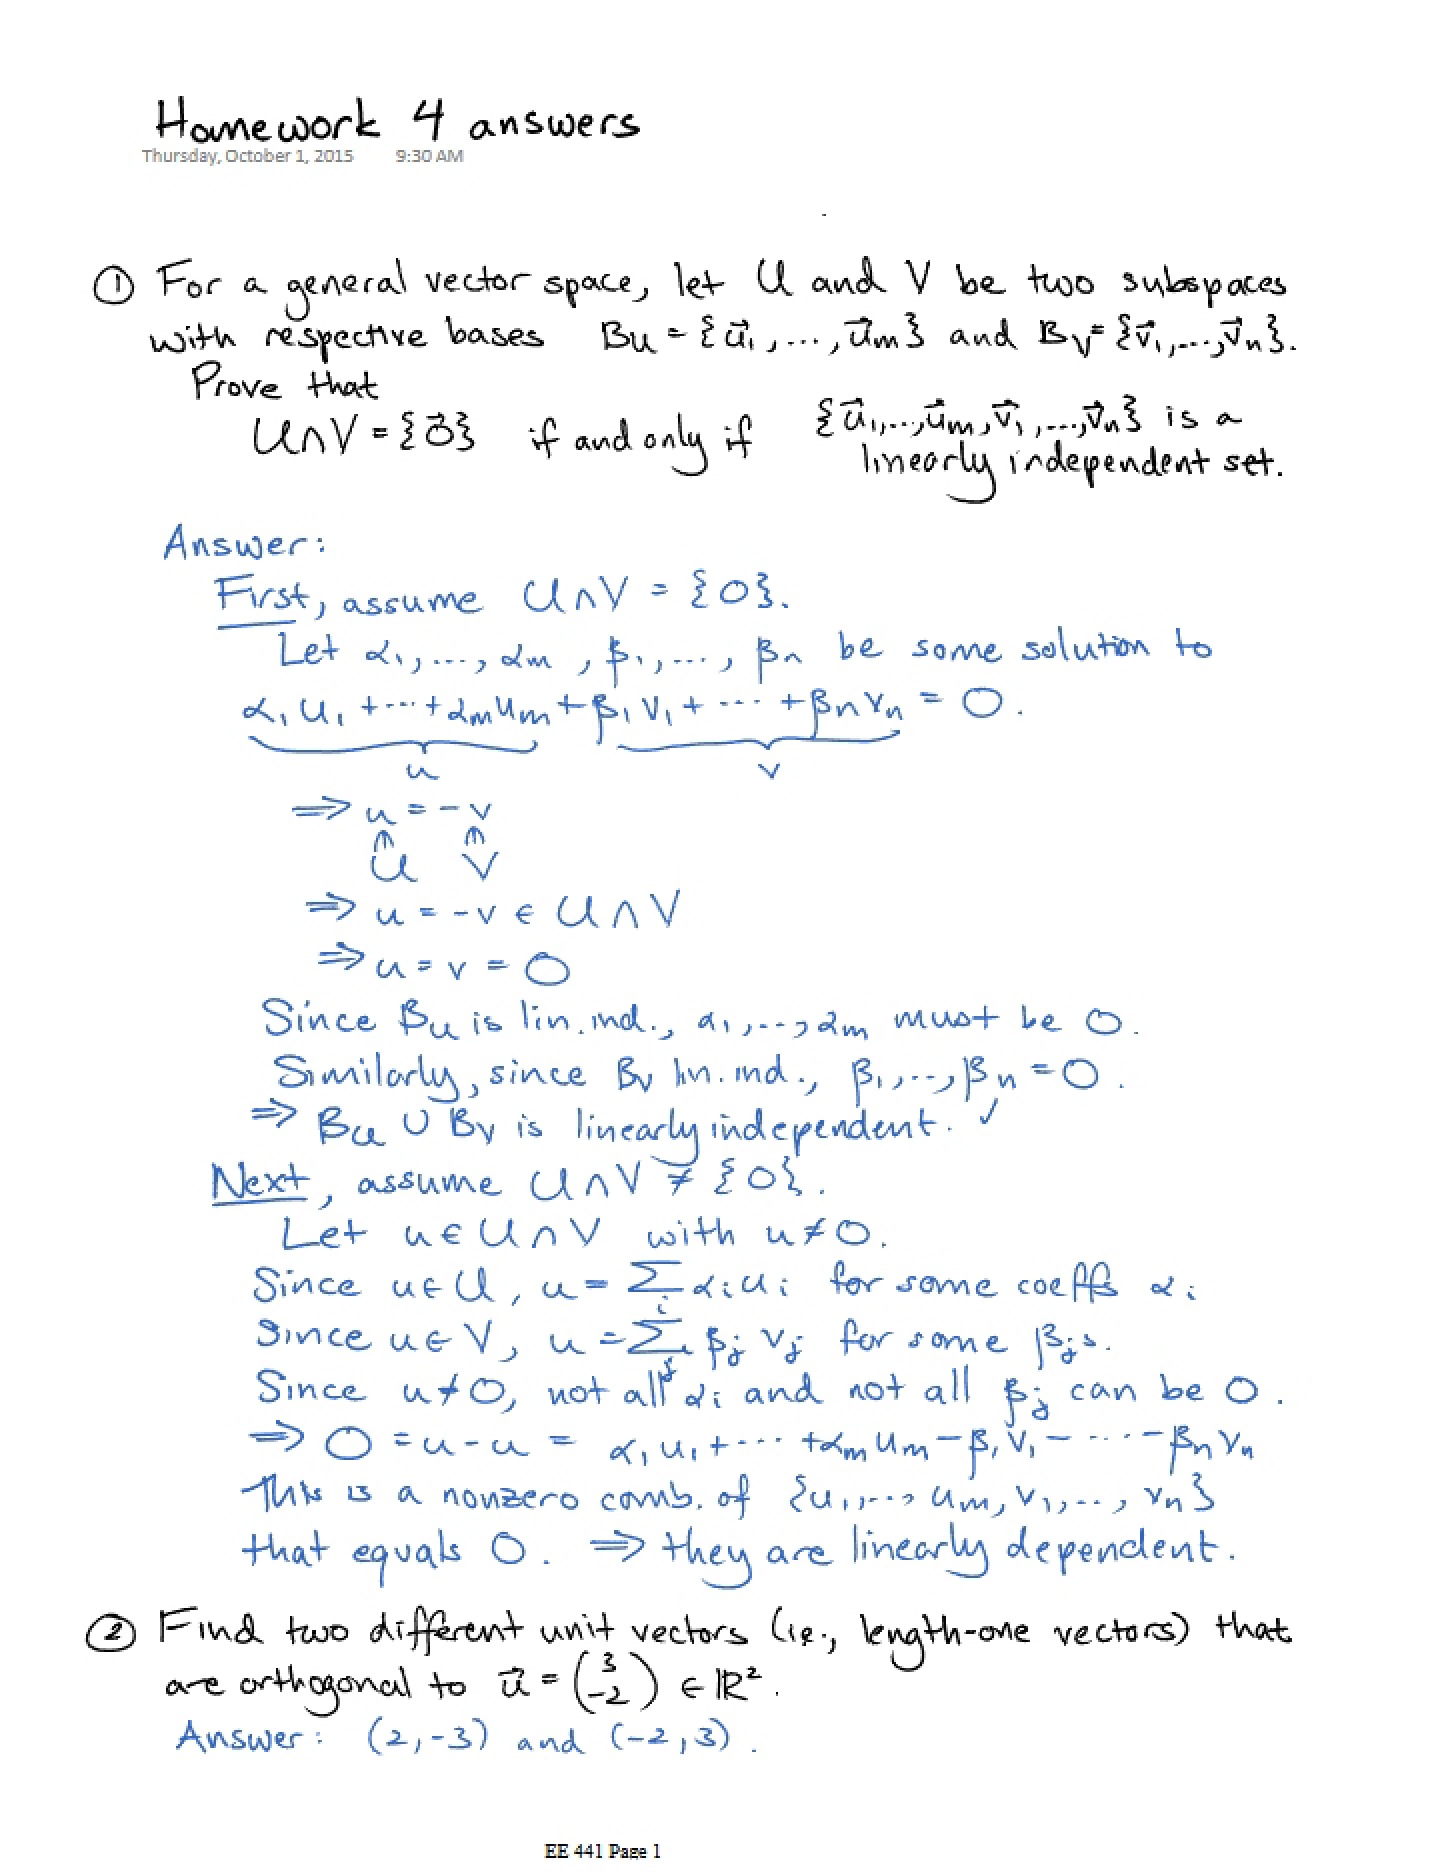 Homework 4 answers
Thursday, October 1, 2015 9:30 AM
① For a general vector space, let U and V be two subspaces
with respective bases B_U = {u⃗₁,...,u⃗ₘ} and B_V = {v⃗₁,...,v⃗ₙ}.
Prove that
U∩V = {0⃗} if and only if {u⃗₁,...,u⃗ₘ,v⃗₁,...,v⃗ₙ} is a
linearly independent set.
Answer:
First, assume U∩V = {0}.
Let α₁,...,αₘ, β₁,...,βₙ be some solution to
α₁u₁+⋯+αₘuₘ+β₁v₁+⋯+βₙvₙ = 0.
u v
⇒ u = -v
∈ ∈
U V
⇒ u = -v ∈ U∩V
⇒ u = v = 0
Since B_U is lin. ind., α₁,...,αₘ must be 0.
Similarly, since B_V lin. ind., β₁,...,βₙ = 0.
⇒ B_U ∪ B_V is linearly independent. ✓
Next, assume U∩V ≠ {0}.
Let u ∈ U∩V with u ≠ 0.
Since u∈U, u = ∑ᵢ αᵢuᵢ for some coeffs αᵢ
Since u∈V, u = ∑ⱼ βⱼvⱼ for some βⱼs.
Since u≠0, not all αᵢ and not all βⱼ can be 0.
⇒ 0 = u-u = α₁u₁+⋯+αₘuₘ-β₁v₁-⋯-βₙvₙ
This is a nonzero comb. of {u₁,...,uₘ,v₁,...,vₙ}
that equals 0. ⇒ they are linearly dependent.
② Find two different unit vectors (i.e., length-one vectors) that
are orthogonal to u⃗ = (3 -2) ∈ ℝ².
Answer: (2,-3) and (-2,3).
EE 441 Page 1